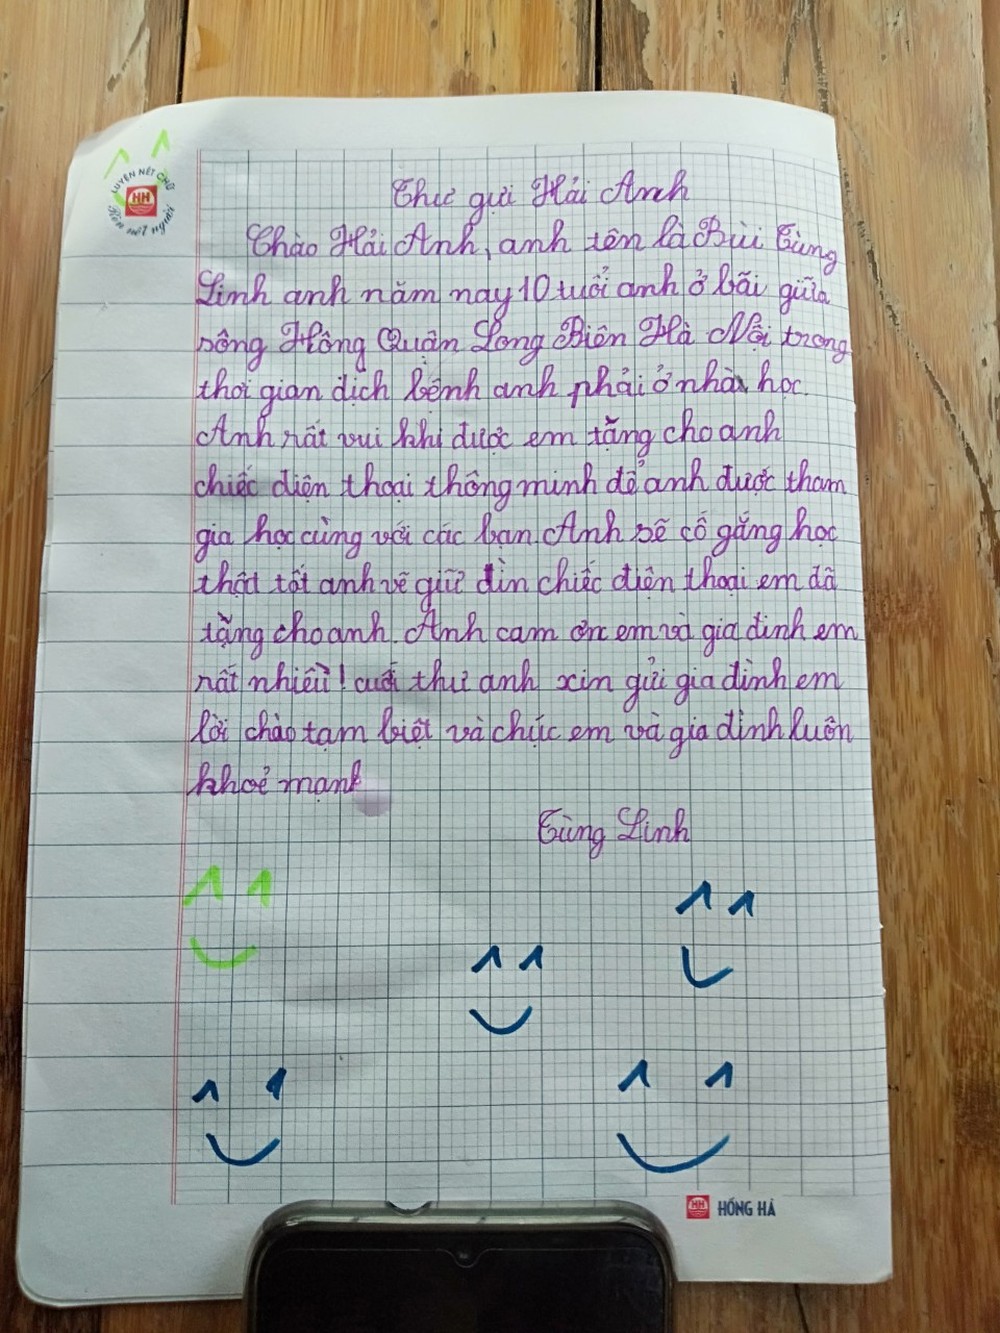 LUYỆN NÉT CHỮ
HH
Rèn nết người
Thư gửi Hải Anh
Chào Hải Anh, anh tên là Bùi Tùng
Linh anh năm nay 10 tuổi anh ở bãi giữa
sông Hồng Quận Long Biên Hà Nội trong
thơi gian dịch bệnh anh phải ở nhà học.
Anh rất vui khi được em tặng cho anh
chiếc điện thoại thông minh để anh được tham
gia học cùng với các bạn. Anh sẽ cố gắng học
thật tốt anh vẽ giữ đìn chiếc điện thoại em đã
tặng cho anh. Anh cam ơn em và gia đình em
rất nhiều! cuối thư anh xin gửi gia đình em
lời chào tạm biệt và chúc em và gia đình luôn
khoẻ mạnh
Tùng Linh
HH HỒNG HÀ